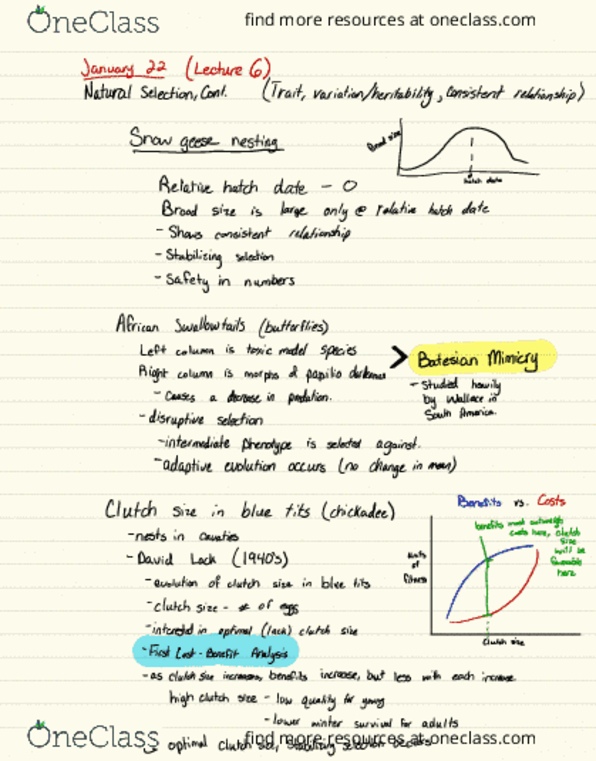 OneClass
find more resources at oneclass.com
January 22 (Lecture 6)
Natural Selection, Cont. (Trait, variation/heritability, consistent relationship)
Snow geese nesting
Brood size
hatch date
Relative hatch date - 0
Brood size is large only @ relative hatch date
- Shows consistent relationship
- Stabilizing selection
- Safety in numbers
African Swallowtails (butterflies)
Left column is toxic model species
> Batesian Mimicry
Right column is morphs of papilio dardanus
- Studied heavily
by Wallace in
South America.
- Causes a decrease in predation.
- disruptive selection
- intermediate phenotype is selected against.
- adaptive evolution occurs (no change in mean)
Clutch size in blue tits (chickadee)
Benefits vs. Costs
benefits must outweigh
costs here, clutch
size
will be
favorable
here
units
of
fitness
clutch size
- nests in cavities
- David Lack (1940's)
- evolution of clutch size in blue tits
- clutch size - # of eggs
- interested in optimal (lack) clutch size
- First Cost-Benefit Analysis
- as clutch size increases, benefits increase, but less with each increase
high clutch size - low quality for young
- lower winter survival for adults
optimal clutch size, stabilizing selection occurs
OneClass
find more resources at oneclass.com